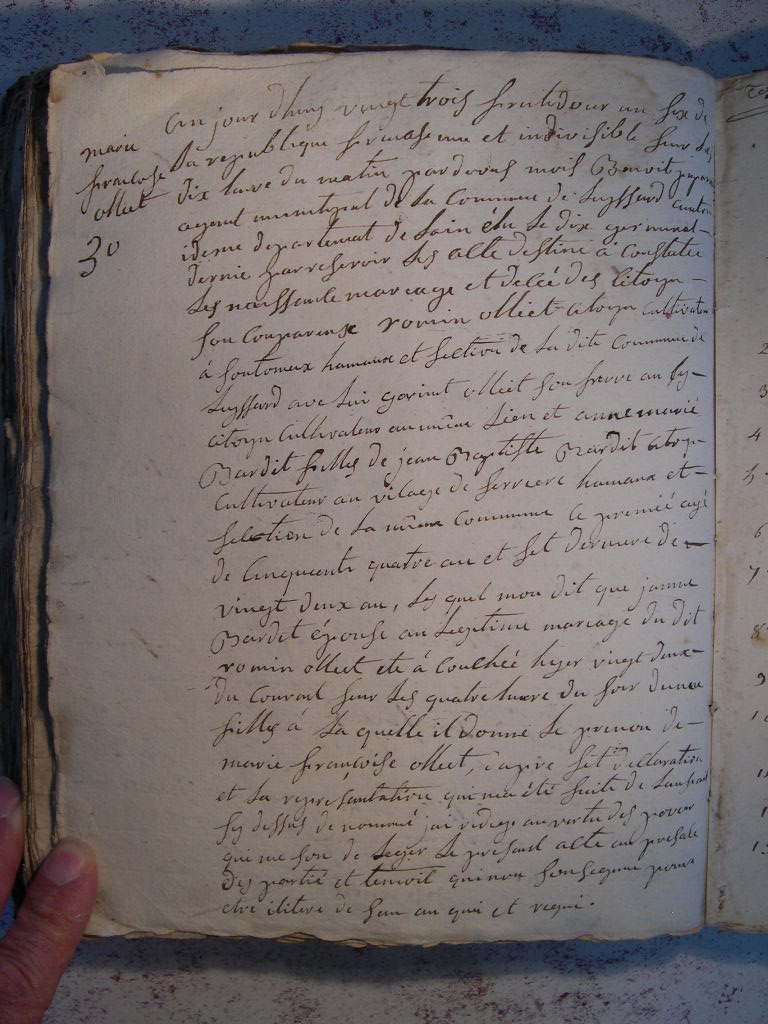 marie
francoise
olliet
30
au jour dhuy vingt trois fruitidour an six de
La republique francaise une et indivisible sur Les
dix heure du matin pardevant mois Benoit
agent municipal de La Commune de Luyssard canton
idem departement de Lain élu Le dix germinal
dernié par reservoir Les alte destiné à Constatée
Les naissance mareage et décée des Citoyn
Son Comparense romin olliet Citoyn Cultivateur
à fontomeux hamaux et section de La dite Commune de
Luyssard avec Lui olliet son frerre au sy
Citoyn Cultivateur au même Lieu et anne marie
Bardit filles de jean Baptiste Bardit Citoyn
Cultivateur au vilage de Serriere hamaux et
selection de La même Commune Le premié agé
de Cinquente quatre an et Set derniere de
vingt deux an, Les quel mon dit que janne
Bardet épouse au Legitime mareage du dit
romin olliet ete à Couchéé hyer vingt deux
du Courant sur Les quatre heure du soir dune
filles à La quelle il donne Le prenon de
marie francoise olliet, dapré set declaration
et La representation qui ma été faite de Lenfant
sy dessus de nommé jai redige au vertu des pover
qui me son de Leger Le present alte au presance
des partié et temoil qui non pour
etre de Sau an qui et requi.